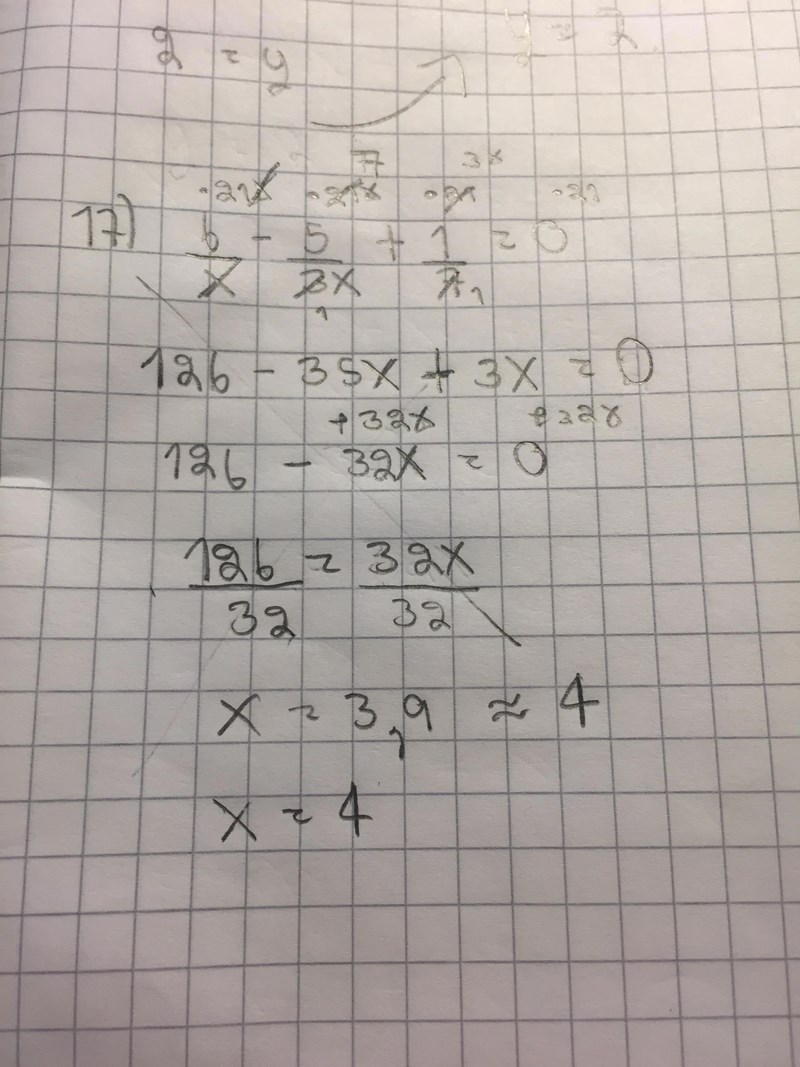 2 = y
·21x ·21x 7 ·21 3x ·21
17) 6/x - 5/3x + 1/7 = 0
1 1
126 - 35x + 3x = 0
+32x +32x
126 - 32x = 0
126/32 = 32x/32
x = 3,9 ≈ 4
x = 4